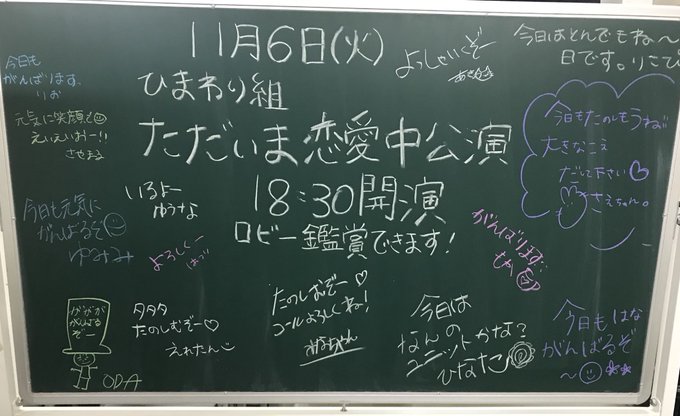 11月6日(火)
ひまわり組
ただいま恋愛中公演
18:30開演
ロビー鑑賞できます!
今日も
がんばります。
りお
元気に笑顔で
えいえいおー!!
さやまる
今日も元気に
がんばるぞ
ゆみみ
いるよー
ゆうな
よろしくー
はつ
よっしゃいくぞー
今日はとんでもね〜
日です。りこぴ
今日もたのしもうね
大きなこえ
だして下さい♡
さえちゃん。
がんばります
ががが
がんばる
ぞー
ODA
タタタ
たのしむぞー♡
えれたん
たのしむぞー♡
コールよろしくね!
みなちゃん
今日は
なんの
ユニットかな?
ひなた
今日もはな
がんばるぞ
〜